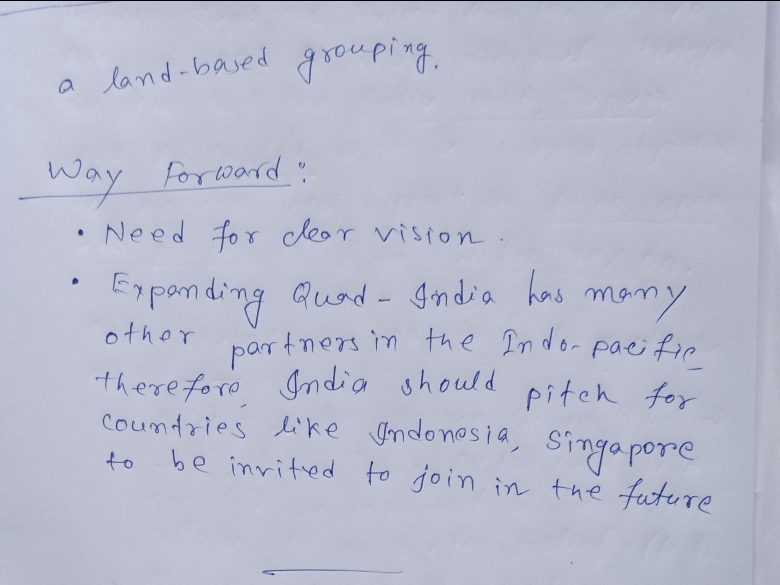 a land-based grouping.
Way Forward:
• Need for clear vision.
• Expanding Quad - India has many
other partners in the Indo-pacific
therefore India should pitch for
countries like Indonesia, Singapore
to be invited to join in the future